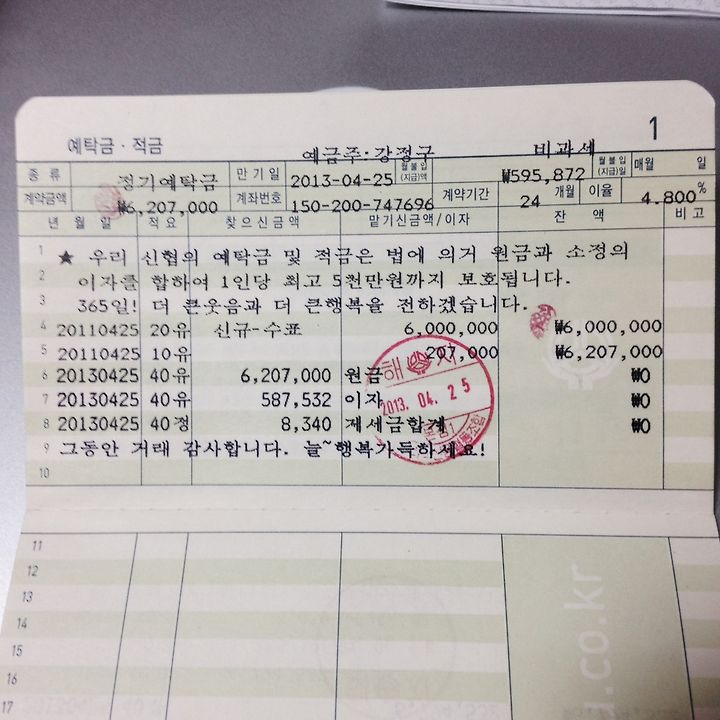 1
예탁금 · 적금 예금주:강정구 비과세
종 류 정기예탁금 만 기 일 2013-04-25 월불입(지급)액 ₩595,872 월불입(지급)일 매월 일
계약금액 ₩6,207,000 계좌번호 150-200-747696 계약기간 24 개월 이율 4.800%
년 월 일 적 요 찾 으 신 금 액 맡기신금액/이자 잔 액 비 고
1 ★ 우리 신협의 예탁금 및 적금은 법에 의거 원금과 소정의
2 이자를 합하여 1인당 최고 5천만원까지 보호됩니다.
3 365일! 더 큰웃음과 더 큰행복을 전하겠습니다.
4 20110425 20유 신규-수표 6,000,000 ₩6,000,000
5 20110425 10유 207,000 ₩6,207,000
6 20130425 40유 6,207,000 원금 ₩0
7 20130425 40유 587,532 이자 ₩0
8 20130425 40정 8,340 제세금합계 ₩0
9 그동안 거래 감사합니다. 늘~행복가득하세요!
해 지
2013. 04. 25
10
11
12
13
14
15
16
17
.co.kr